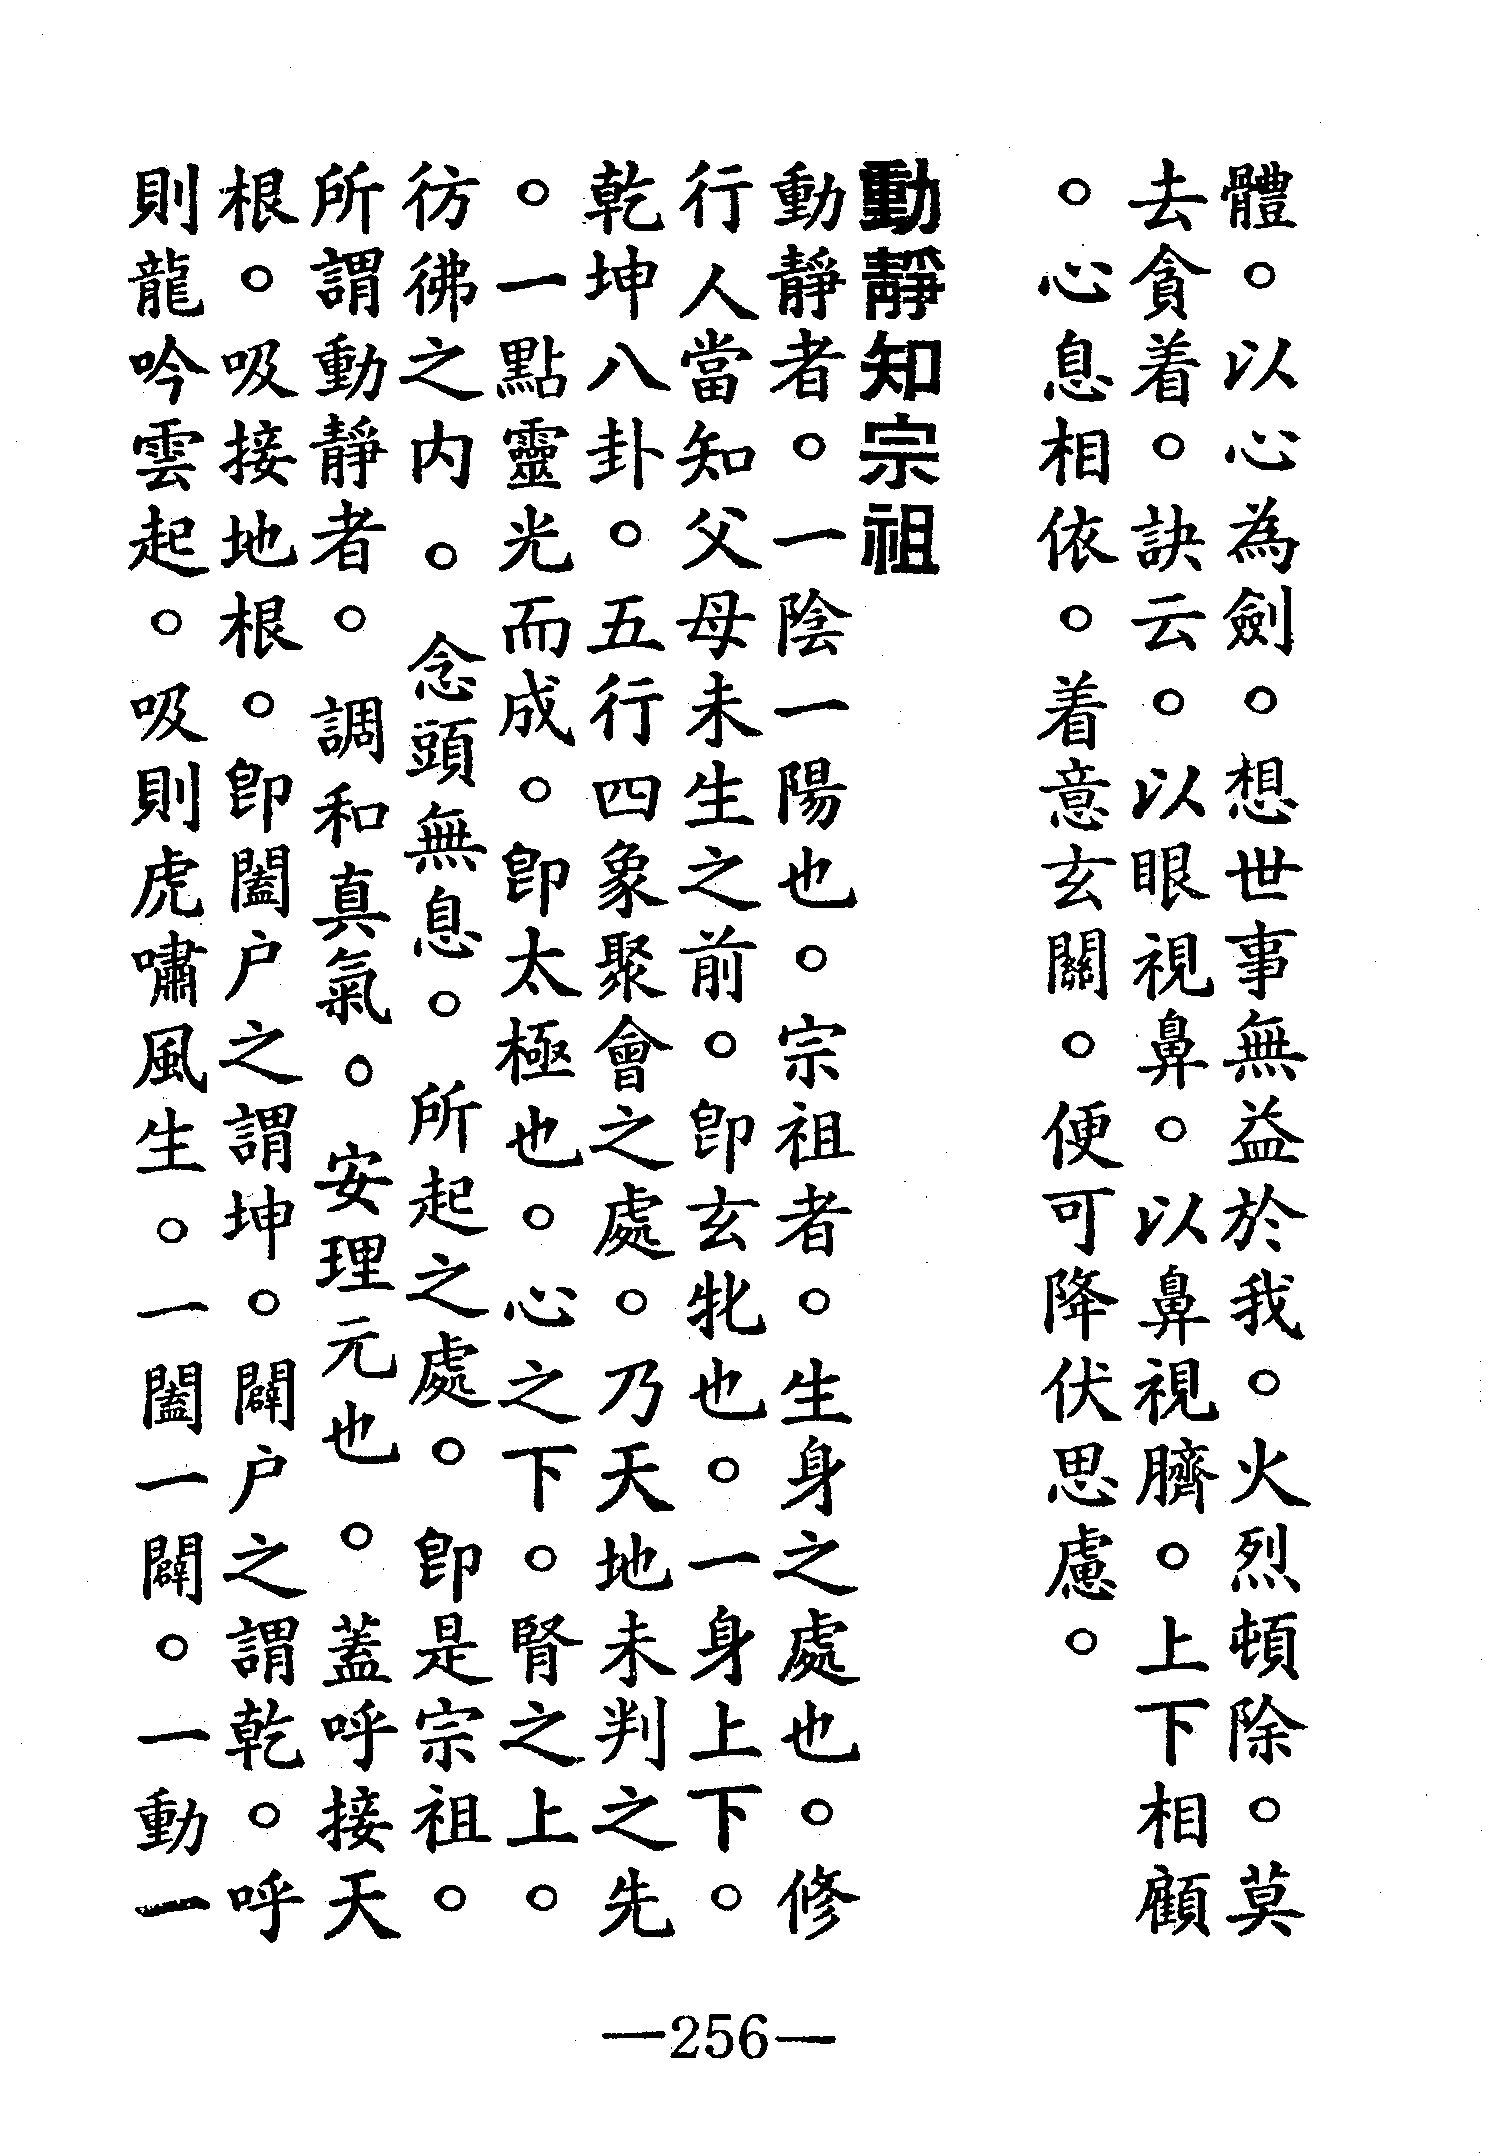 體。以心為劍。想世事無益於我。火烈頓除。莫
去貪着。訣云。以眼視鼻。以鼻視臍。上下相顧
。心息相依。着意玄關。便可降伏思慮。
動靜知宗祖
動靜者。一陰一陽也。宗祖者。生身之處也。修
行人當知父母未生之前。卽玄牝也。一身上下。
乾坤八卦。五行四象聚會之處。乃天地未判之先
。一點靈光而成。卽太極也。心之下。腎之上。
彷彿之內。念頭無息。所起之處。卽是宗祖。
所謂動靜者。調和真氣。安理元也。蓋呼接天
根。吸接地根。卽闔户之謂坤。闢户之謂乾。呼
則龍吟雲起。吸則虎嘯風生。一闔一闢。一動一
—256—